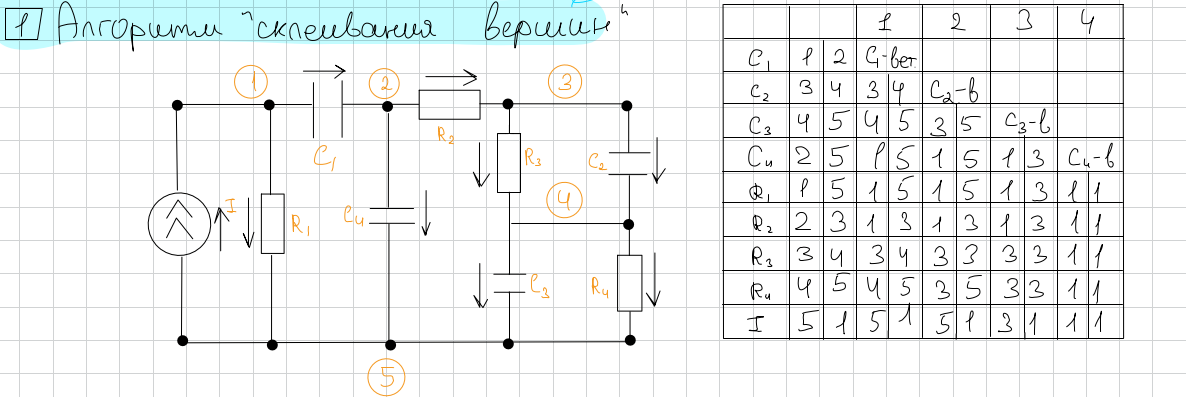 1 Алгоритм "склеивания вершин"
1 2 3
C1 R2
R3 C2
4
I R1 C4
C3 R4
5
1 2 3 4
C1 1 2 C1-вет
C2 3 4 3 4 C2-в
C3 4 5 4 5 3 5 C3-в
C4 2 5 1 5 1 5 1 3 C4-в
R1 1 5 1 5 1 5 1 3 1 1
R2 2 3 1 3 1 3 1 3 1 1
R3 3 4 3 4 3 3 3 3 1 1
R4 4 5 4 5 3 5 3 3 1 1
I 5 1 5 1 5 1 3 1 1 1